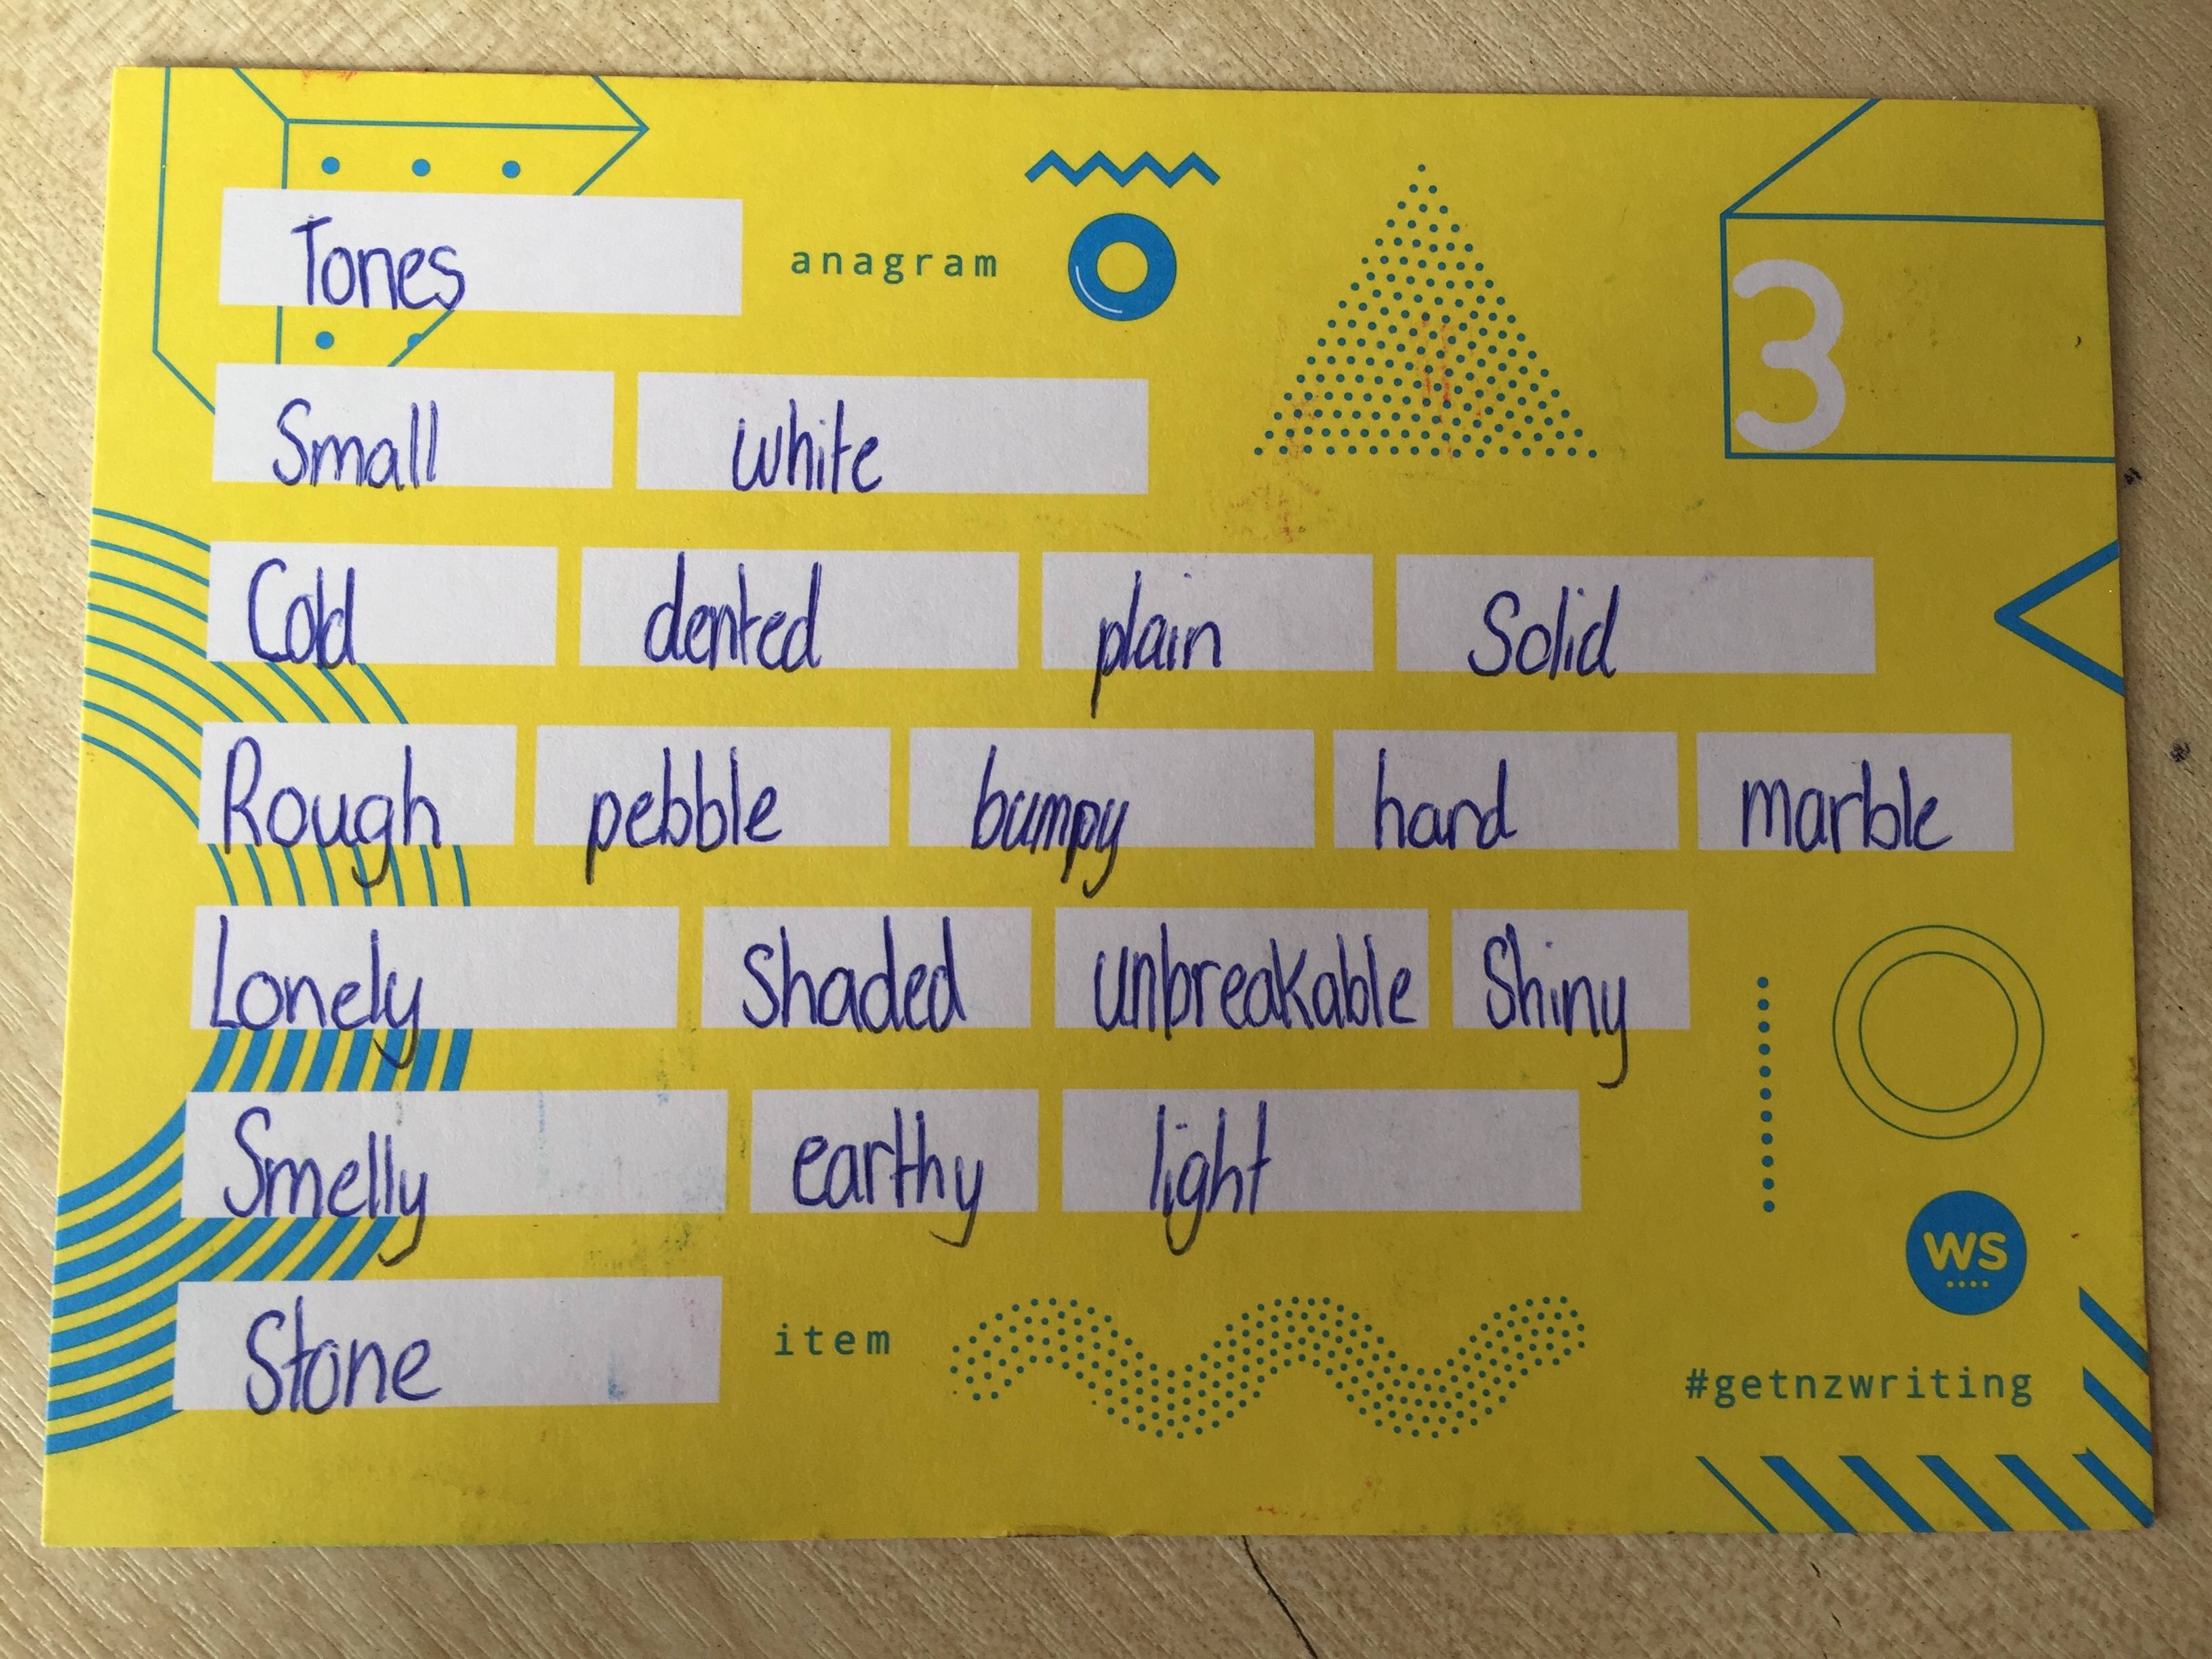 Tones anagram
3
Small white
Cold dented plain Solid
Rough pebble bumpy hard marble
Lonely shaded unbreakable Shiny
Smelly earthy light
WS
Stone item
#getnzwriting